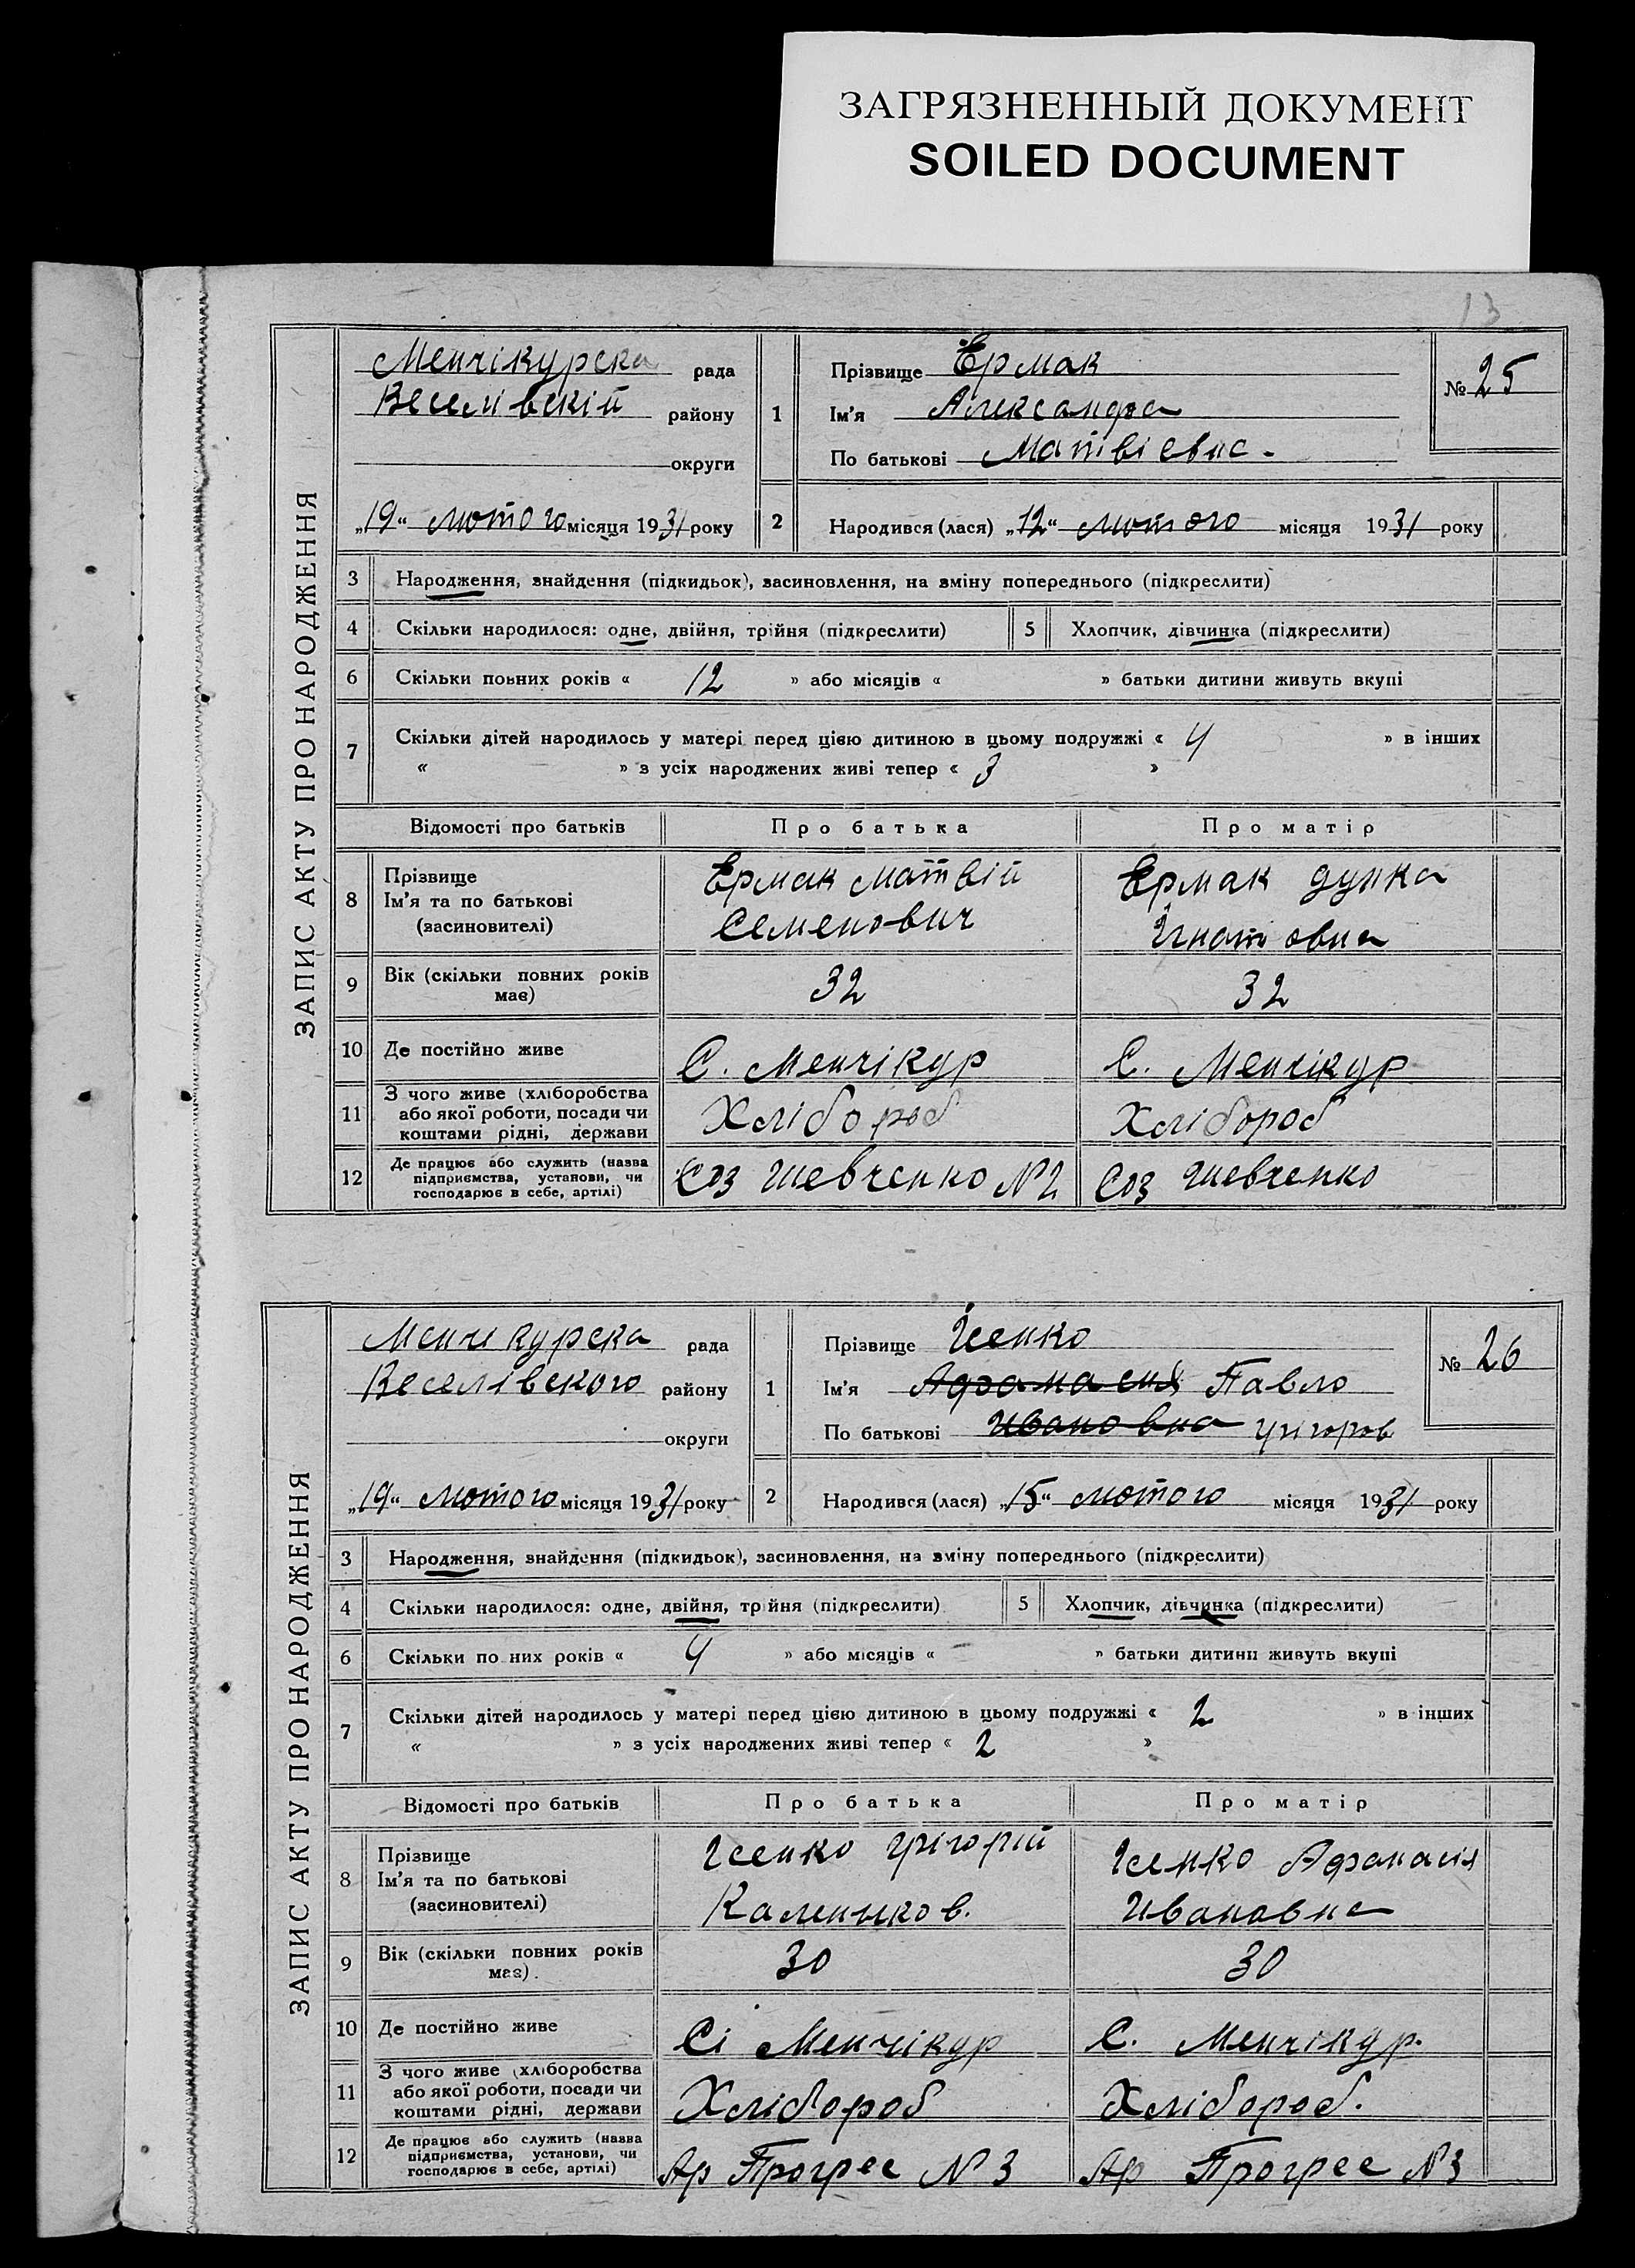 ЗАГРЯЗНЕННЫЙ ДОКУМЕНТ
SOILED DOCUMENT
13
ЗАПИС АКТУ ПРО НАРОДЖЕННЯ
Менчікурска рада
Веселівскій району
округи
„19“ лютого місяця 1931 року
1
Прізвище Ермак
Ім'я Александра
По батькові Матвіевна.
№ 25
2
Народився (лася) „12“ лютого місяця 1931 року
3 Народження, знайдення (підкидьок), засиновлення, на зміну попереднього (підкреслити)
4 Скільки народилося: одне, двійня, трійня (підкреслити)
5 Хлопчик, дівчинка (підкреслити)
6 Скільки повних років « 12 » або місяців « » батьки дитини живуть вкупі
7 Скільки дітей народилось у матері перед цією дитиною в цьому подружжі « 4 » в інших
« » з усіх народжених живі тепер « 3 »
Відомості про батьків Про батька Про матір
8 Прізвище
Ім'я та по батькові
(засиновителі)
Ермак Матвій
Семенович
Ермак Дунка
Ігнатовна
9 Вік (скільки повних років
має)
32 32
10 Де постійно живе С. Менчікур С. Менчікур
11 З чого живе (хліборобства
або якої роботи, посади чи
коштами рідні, держави
Хлібороб Хлібороб
12 Де працює або служить (назва
підприємства, установи, чи
господарює в себе, артілі)
Соз Шевченко №2 Соз Шевченко
ЗАПИС АКТУ ПРО НАРОДЖЕННЯ
Менчікурска рада
Веселівского району
округи
„19“ лютого місяця 1931 року
1
Прізвище Исенко
Ім'я Афанасия Павло
По батькові Ивановна Григоров
№ 26
2
Народився (лася) „15“ лютого місяця 1931 року
3 Народження, знайдення (підкидьок), засиновлення, на зміну попереднього (підкреслити)
4 Скільки народилося: одне, двійня, трійня (підкреслити)
5 Хлопчик, дівчинка (підкреслити)
6 Скільки повних років « 4 » або місяців « – » батьки дитини живуть вкупі
7 Скільки дітей народилось у матері перед цією дитиною в цьому подружжі « 2 » в інших
« » з усіх народжених живі тепер « 2 »
Відомості про батьків Про батька Про матір
8 Прізвище
Ім'я та по батькові
(засиновителі)
Исенко Грігорій
Исенко Афанасія
Ивановна
9 Вік (скільки повних років
має).
30 30
10 Де постійно живе Сі Менчікур С. Менчікур.
11 З чого живе (хліборобства
або якої роботи, посади чи
коштами рідні, держави
Хлібороб Хлібороб.
12 Де працює або служить (назва
підприємства, установи, чи
господарює в себе, артілі)
Ар Прогрес №3 Ар Прогрес №3